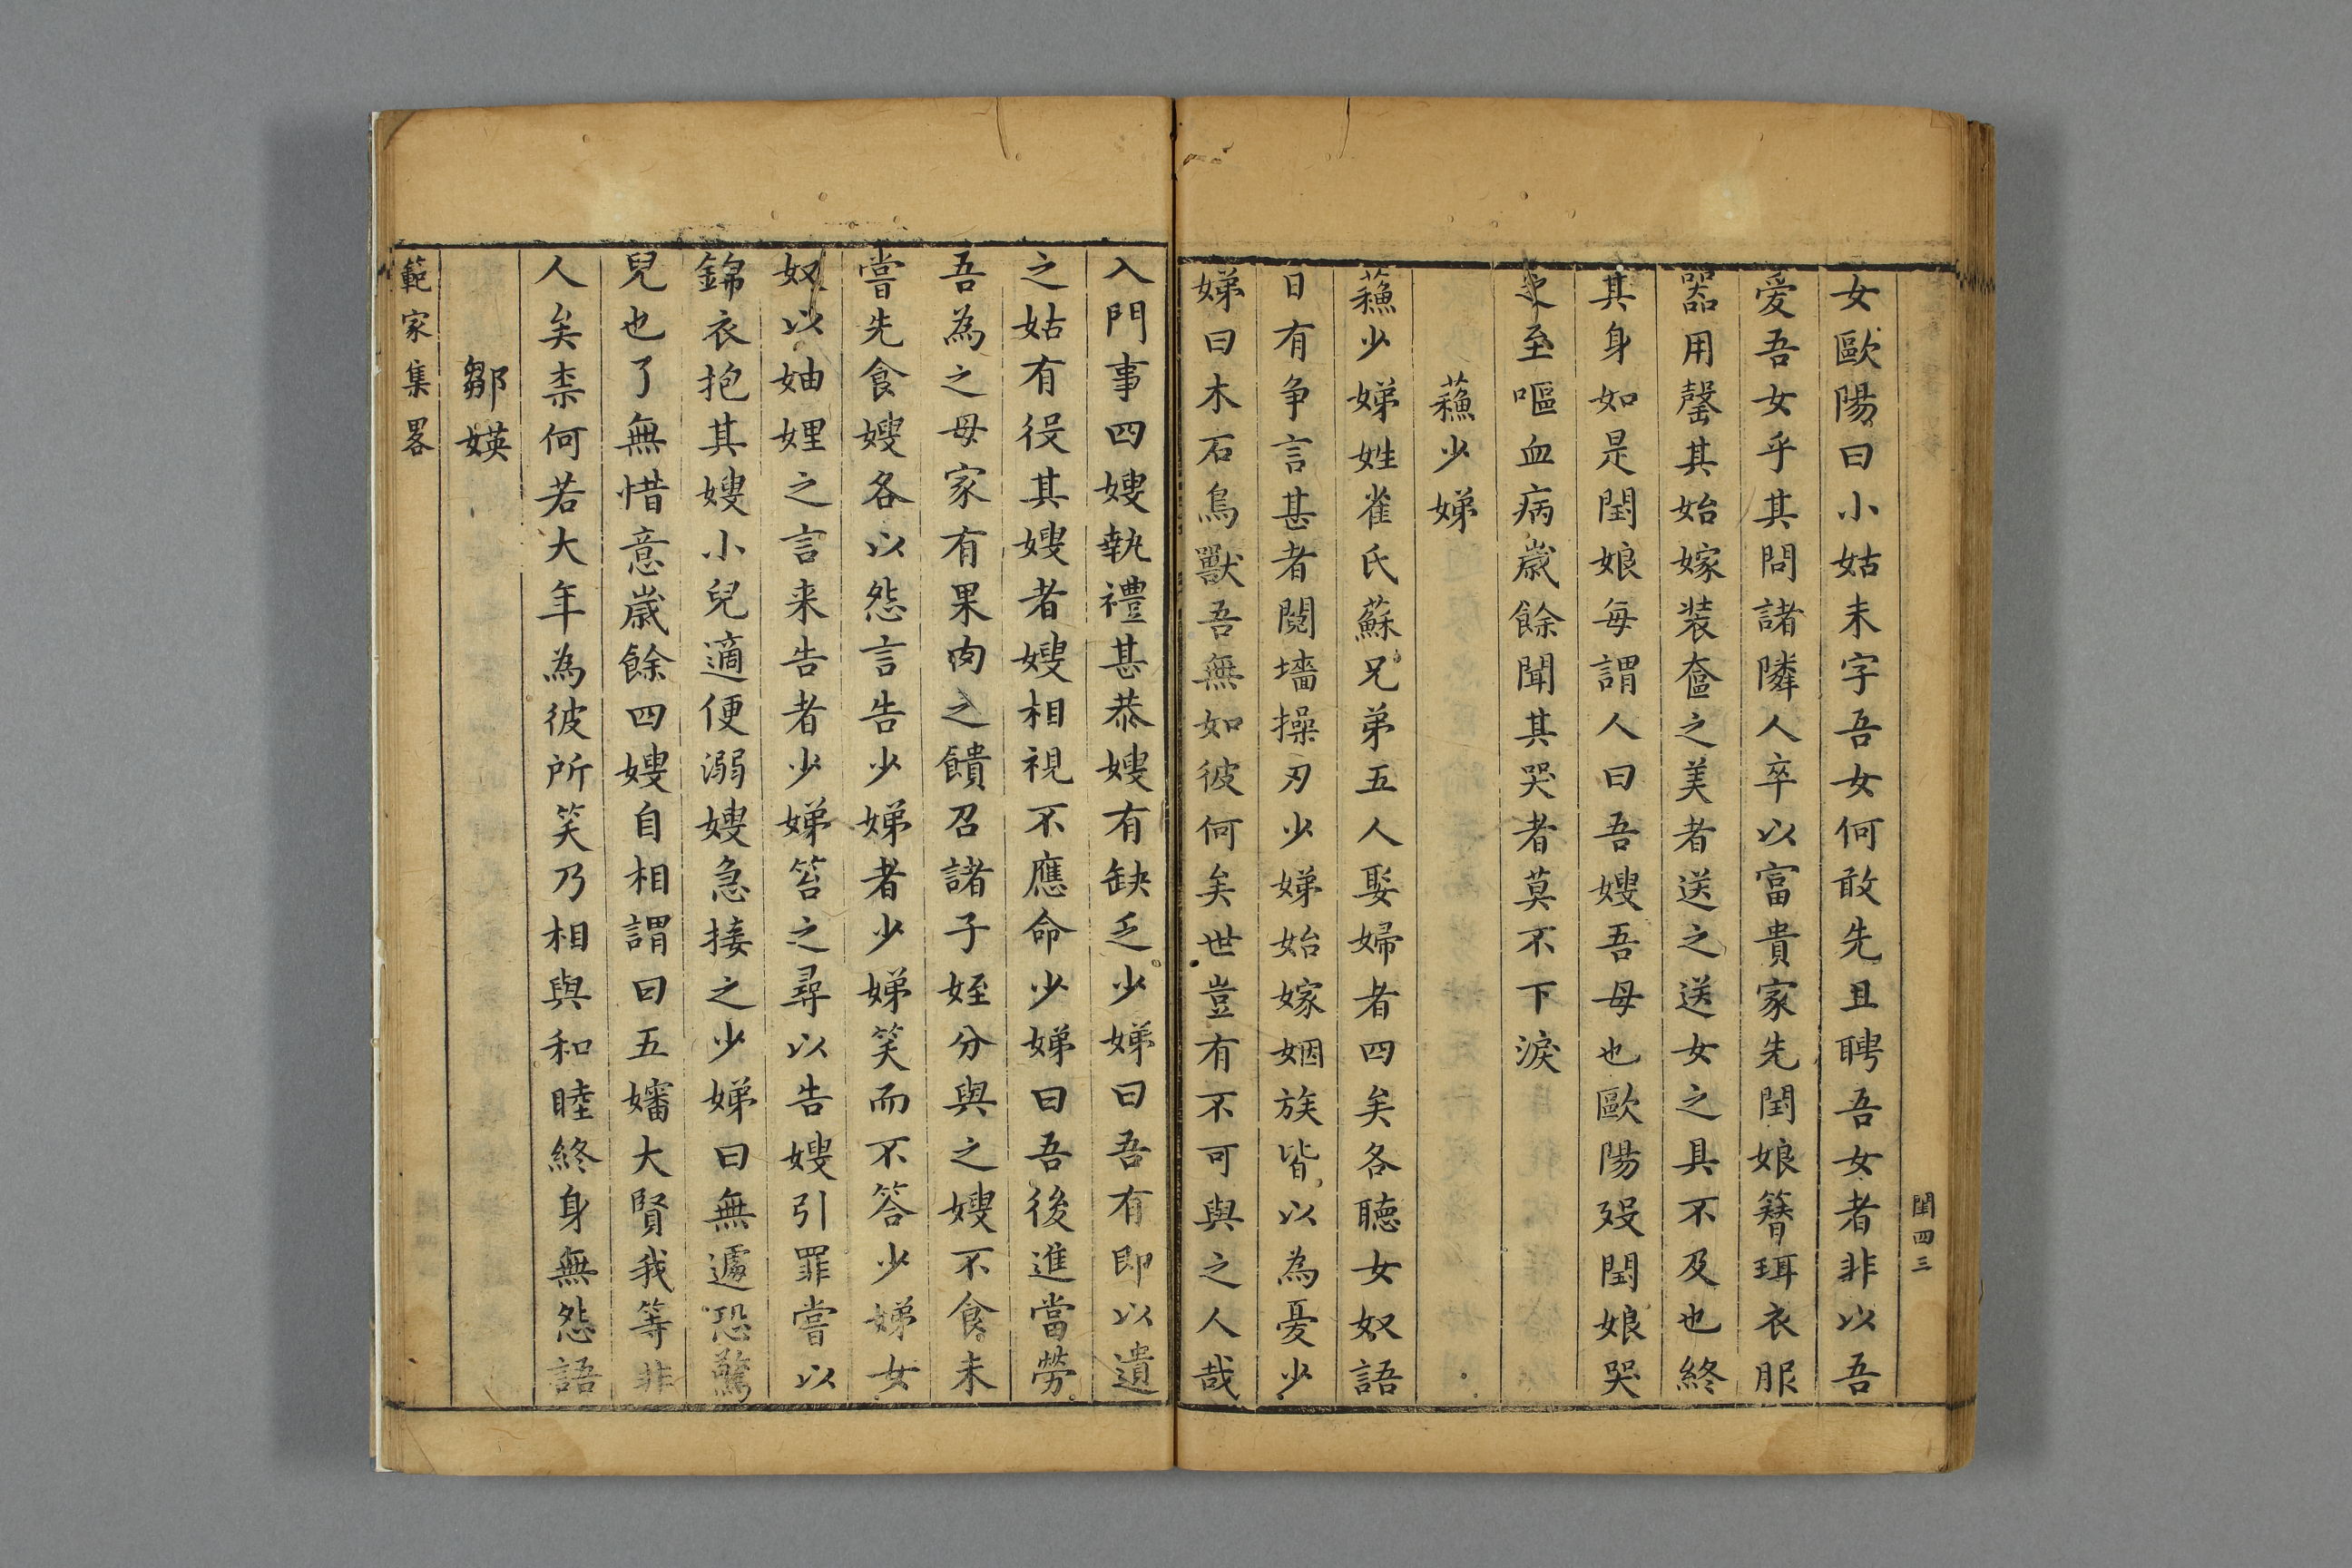 閨四三
女歐陽曰小姑未字吾女何敢先且聘吾女者非以吾
爱吾女乎其問諸隣人卒以富貴家先閏娘簪珥衣服
器用罄其始嫁装奩之美者送之送女之具不及也終
其身如是閏娘每謂人曰吾嫂吾母也歐陽殁閏娘哭
之至嘔血病歲餘聞其哭者莫不下淚
蘓少娣
蘓少娣姓崔氏蘇兄弟五人娶婦者四矣各聴女奴語
日有争言甚者鬩墻操刃少娣始嫁姻族皆以為憂少
娣曰木石鳥獸吾無如彼何矣世豈有不可與之人哉
入門事四嫂執禮甚恭嫂有缺乏少娣曰吾有即以遺
之姑有役其嫂者嫂相視不應命少娣曰吾後進當勞
吾為之母家有果肉之饋召諸子姪分與之嫂不食未
嘗先食嫂各以怨言告少娣者少娣笑而不答少娣女
奴以妯娌之言来告者少娣笞之尋以告嫂引罪嘗以
錦衣抱其嫂小兒適便溺嫂急接之少娣曰無遽恐驚
兒也了無惜意歲餘四嫂自相謂曰五嬸大賢我等非
人矣柰何若大年為彼所笑乃相與和睦終身無怨語
鄒媖
範家集畧